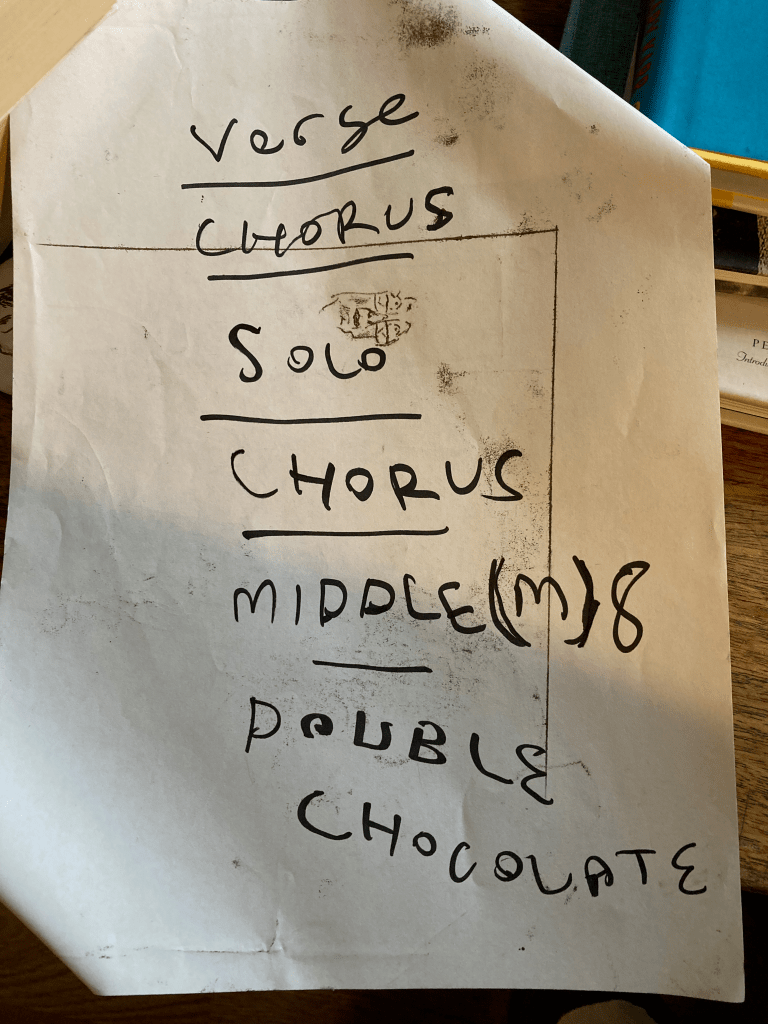 Verse
CHORUS
SOLO
CHORUS
MIDDLE (M) 8
DOUBLE
CHOCOLATE
PE
Introdu